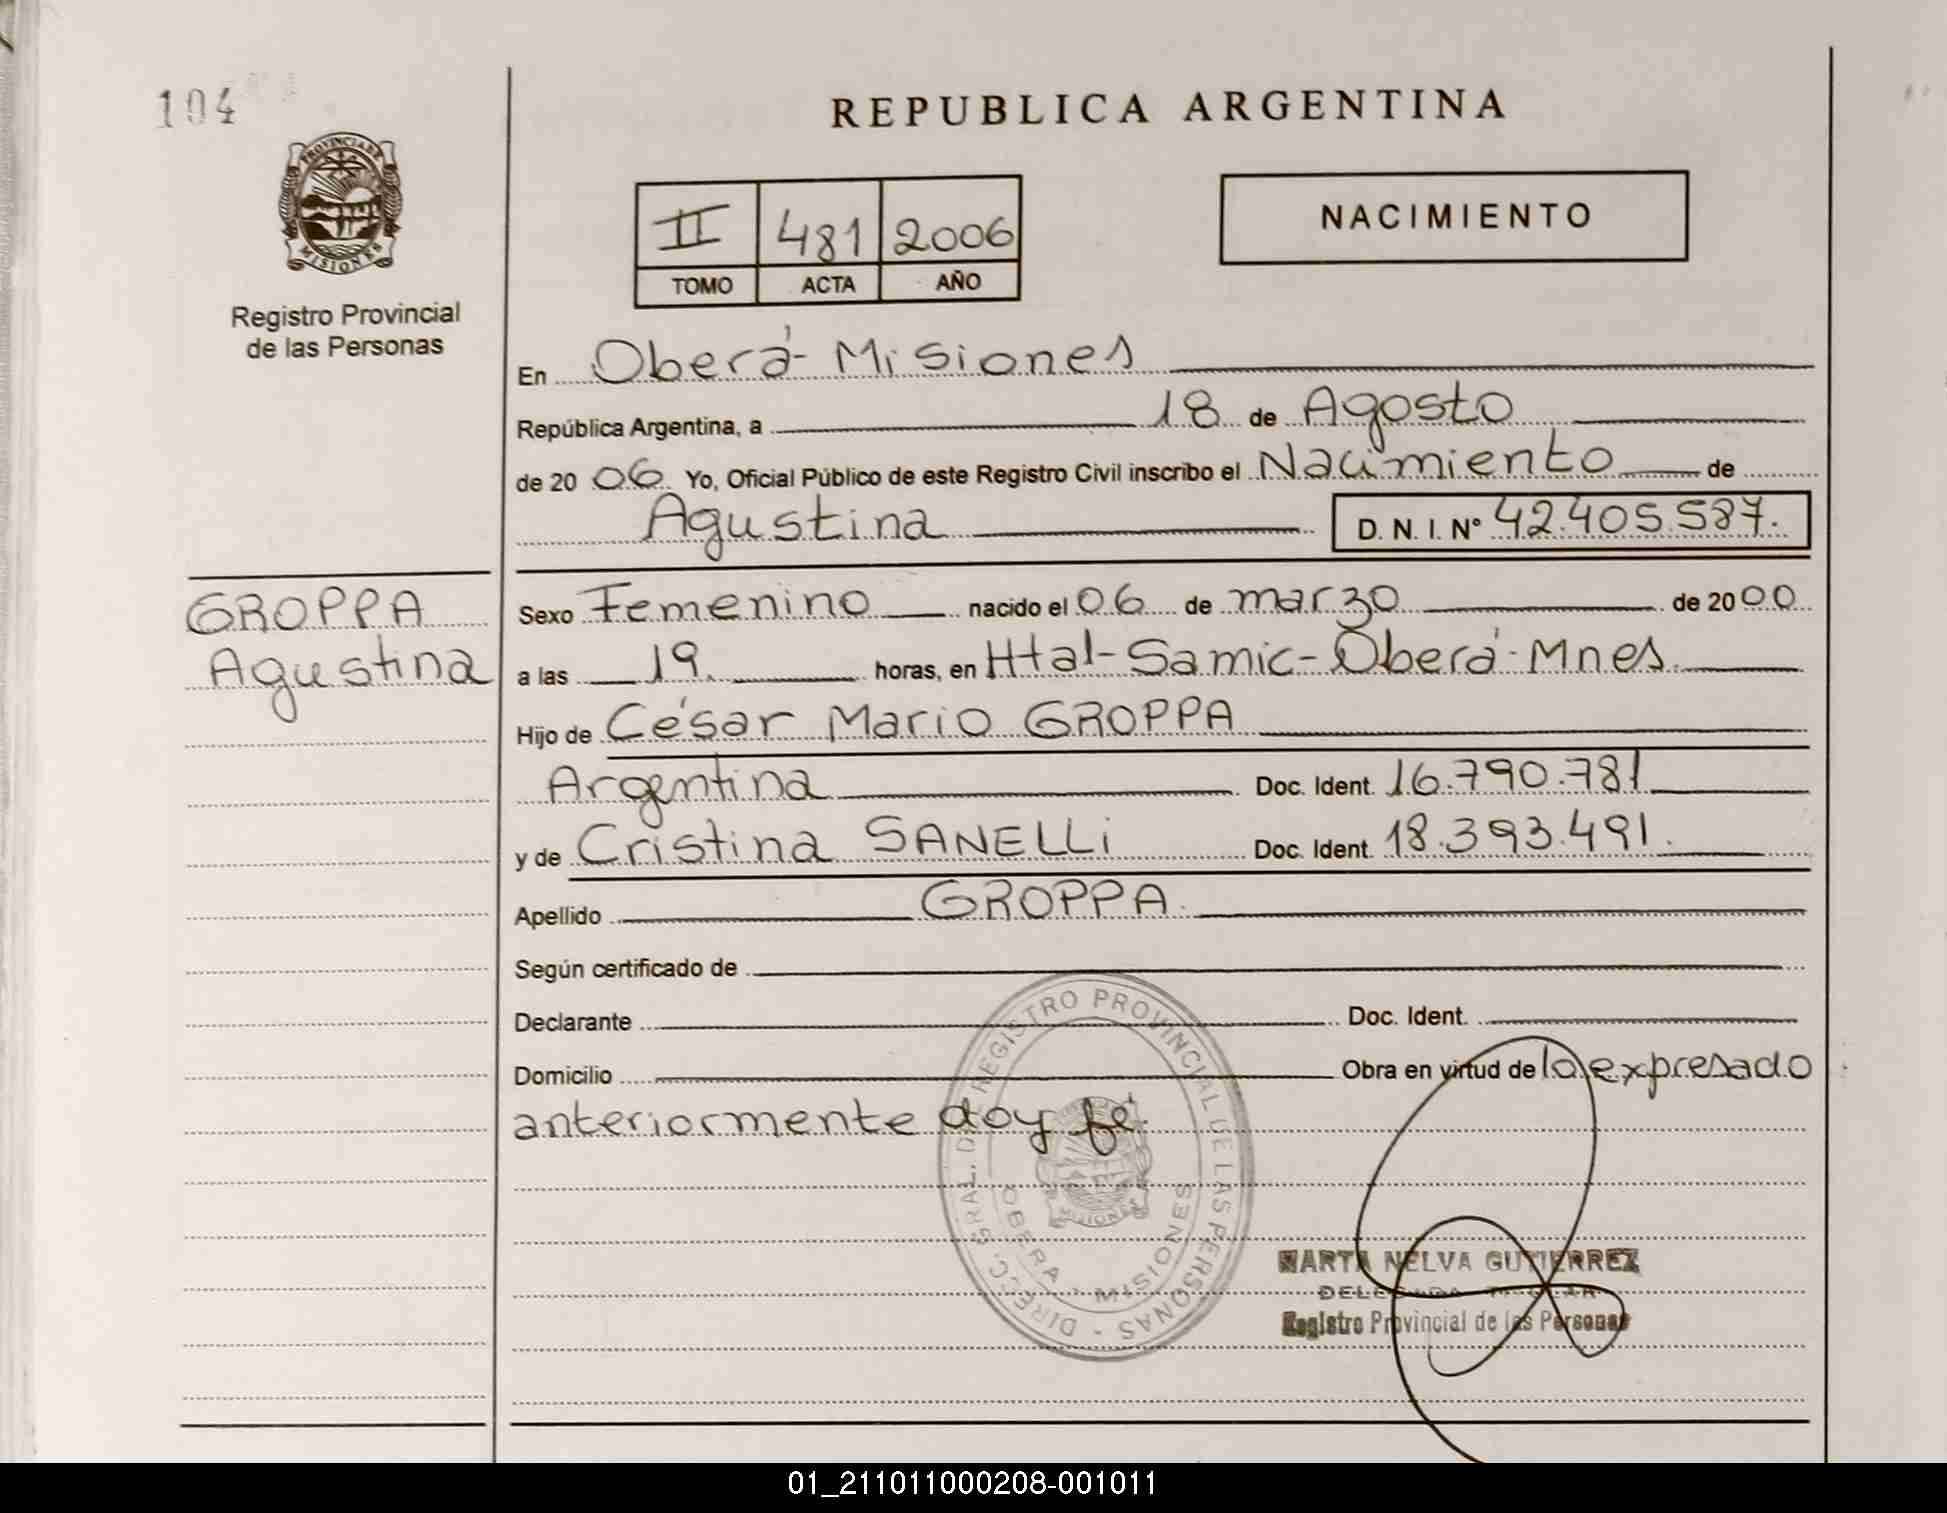 104
PROVINCIA DE
MISIONES
Registro Provincial
de las Personas
REPUBLICA ARGENTINA
II 481 2006
TOMO ACTA AÑO
NACIMIENTO
En Oberá - Misiones
República Argentina, a 18 de Agosto
de 20 06 Yo, Oficial Público de este Registro Civil inscribo el Nacimiento de
Agustina D. N. I. Nº 42.405.587.
GROPPA
Agustina
Sexo Femenino nacido el 06 de marzo de 20 00
a las 19. horas, en Htal-Samic-Oberá-Mnes.
Hijo de César Mario GROPPA
Argentina Doc. Ident. 16.790.781
y de Cristina SANELLi Doc. Ident. 18.393.491.
Apellido GROPPA.
Según certificado de
Declarante Doc. Ident.
Domicilio Obra en virtud de lo expresado
anteriormente doy fé.
DIRECC. GRAL. DE REGISTRO PROVINCIAL DE LAS PERSONAS -
OBERA - MISIONES
MISIONES
MARTA NELVA GUTIERREZ
DELEGADA TITULAR
Registro Provincial de las Personas
01_211011000208-001011